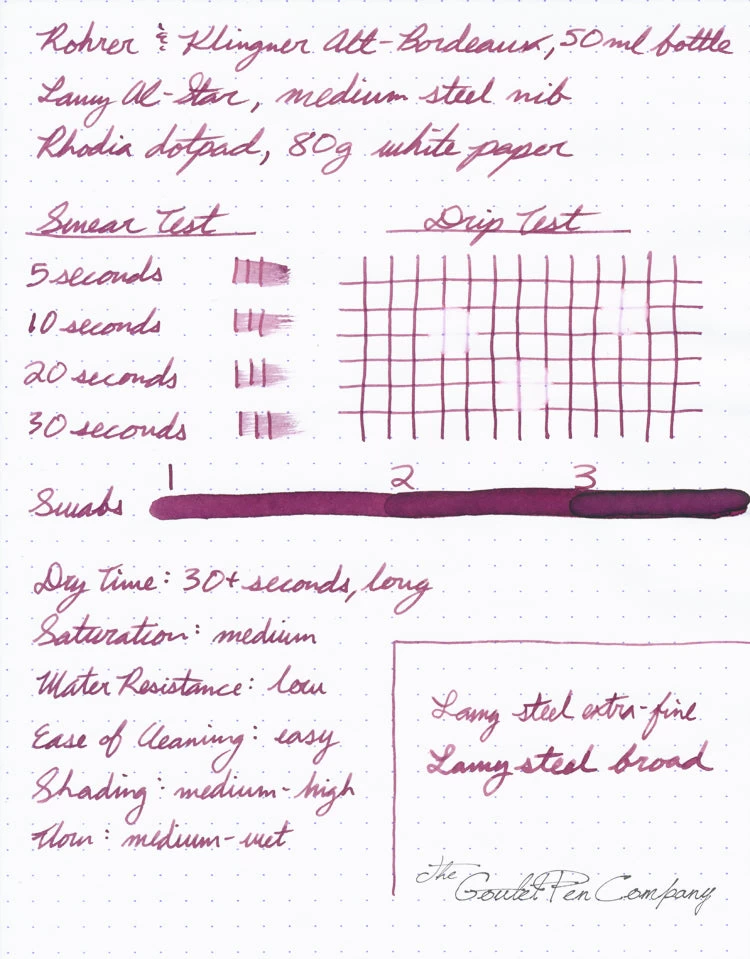 Rohrer & Klingner Alt-Bordeaux, 50ml bottle
Lamy Al-Star, medium steel nib
Rhodia dotpad, 80g white paper
Smear Test
5 seconds
10 seconds
20 seconds
30 seconds
Drip Test
1 2 3
Swabs
Dry Time: 30+ seconds, long
Saturation: medium
Water Resistance: low
Ease of Cleaning: easy
Shading: medium-high
Flow: medium-wet
Lamy steel extra-fine
Lamy steel broad
The
Goulet Pen Company